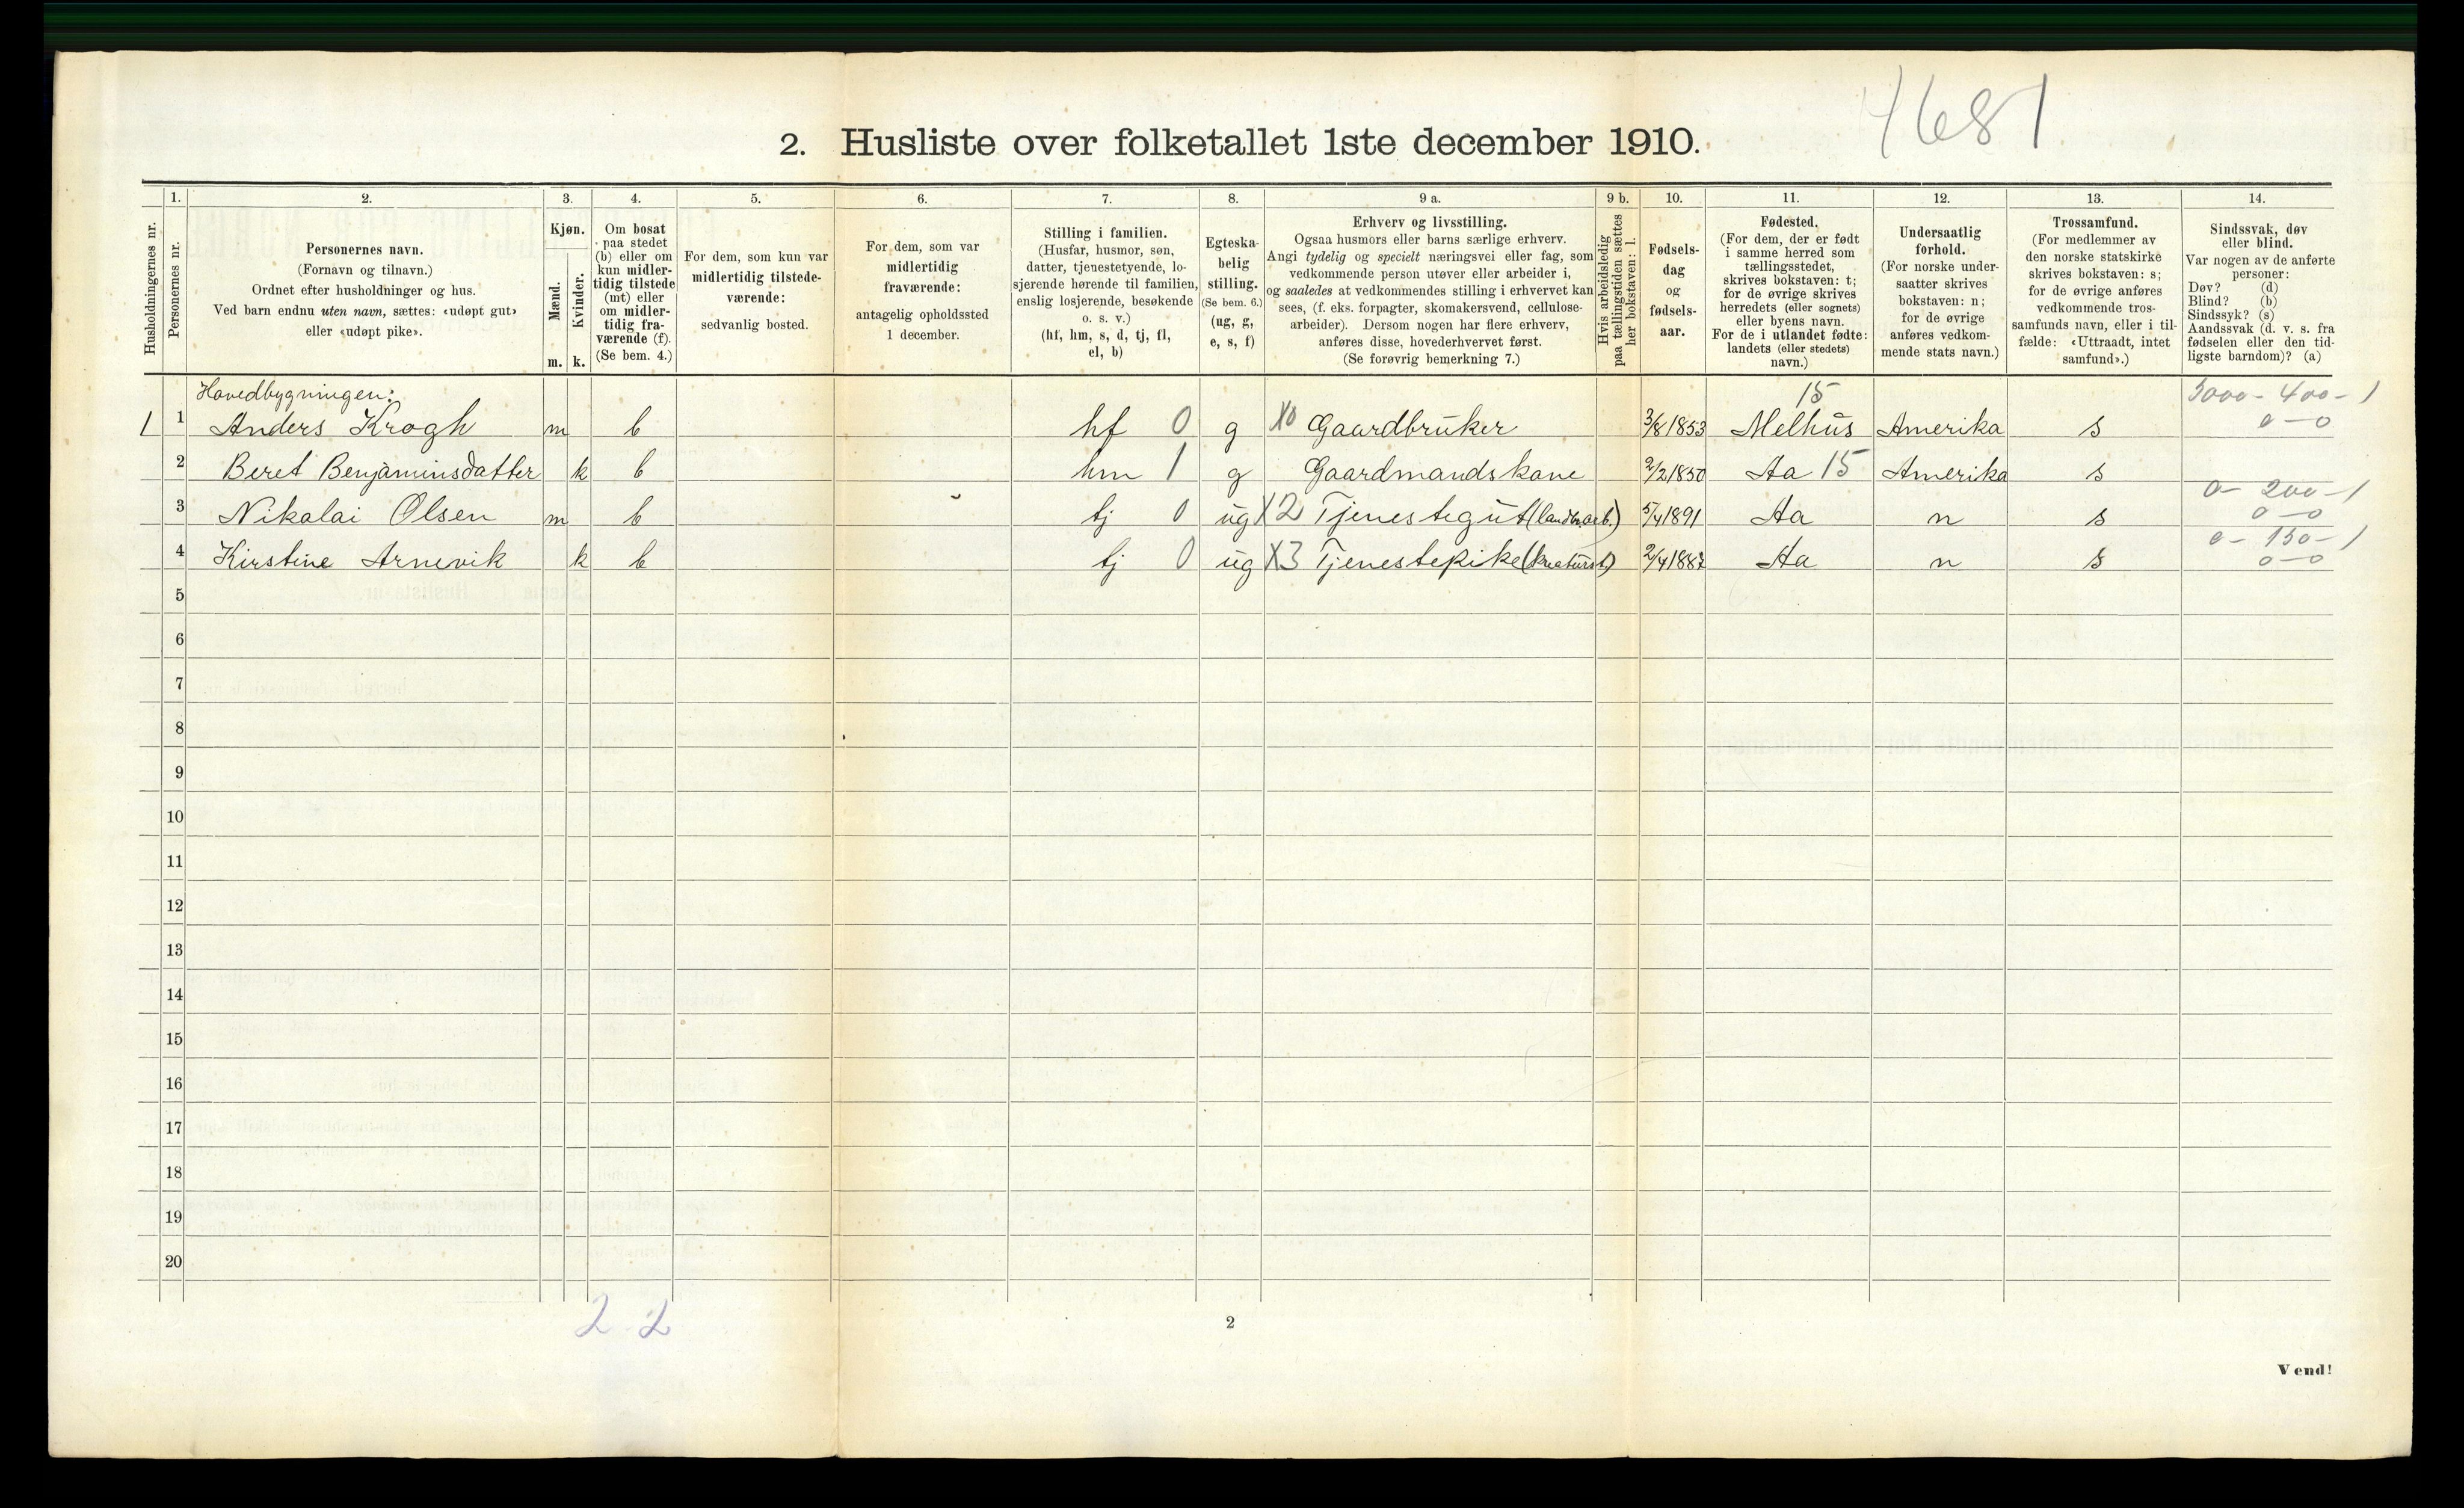 4681
2. Husliste over folketallet 1ste december 1910.
Husholdningernes nr.
1.
Personernes nr.
2.
Personernes navn.
(Fornavn og tilnavn.)
Ordnet efter husholdninger og hus.
Ved barn endnu uten navn, sættes: «udøpt gut»
eller «udøpt pike».
3.
Kjøn.
Mænd.
Kvinder.
m. k.
4.
Om bosat
paa stedet
(b) eller om
kun midler-
tidig tilstede
(mt) eller
om midler-
tidig fra-
værende (f).
(Se bem. 4.)
5.
For dem, som kun var
midlertidig tilstede-
værende:
sedvanlig bosted.
6.
For dem, som var
midlertidig
fraværende:
antagelig opholdssted
1 december.
7.
Stilling i familien.
(Husfar, husmor, søn,
datter, tjenestetyende, lo-
sjerende hørende til familien,
enslig losjerende, besøkende
o. s. v.)
(hf, hm, s, d, tj, fl,
el, b)
8.
Egteska-
belig
stilling.
(Se bem. 6.)
(ug, g,
e, s, f)
9 a.
Erhverv og livsstilling.
Ogsaa husmors eller barns særlige erhverv.
Angi tydelig og specielt næringsvei eller fag, som
vedkommende person utøver eller arbeider i,
og saaledes at vedkommendes stilling i erhvervet kan
sees, (f. eks. forpagter, skomakersvend, cellulose-
arbeider). Dersom nogen har flere erhverv,
anføres disse, hovederhvervet først.
(Se forøvrig bemerkning 7.)
9 b.
Hvis arbeidsledig
paa tællingstiden sættes
her bokstaven: l.
10.
Fødsels-
dag
og
fødsels-
aar.
11.
Fødested.
(For dem, der er født
i samme herred som
tællingsstedet,
skrives bokstaven: t;
for de øvrige skrives
herredets (eller sognets)
eller byens navn.
For de i utlandet fødte:
landets (eller stedets)
navn.)
12.
Undersaatlig
forhold.
(For norske under-
saatter skrives
bokstaven: n;
for de øvrige
anføres vedkom-
mende stats navn.)
13.
Trossamfund.
(For medlemmer av
den norske statskirke
skrives bokstaven: s;
for de øvrige anføres
vedkommende tros-
samfunds navn, eller i til-
fælde: «Uttraadt, intet
samfund».)
14.
Sindssvak, døv
eller blind.
Var nogen av de anførte
personer:
Døv? (d)
Blind? (b)
Sindssyk? (s)
Aandssvak (d. v. s. fra
fødselen eller den tid-
ligste barndom)? (a)
Hovedbygningen: 15 5000 - 400 - 1
1 1 Anders Krogh m b hf 0 g X0 Gaardbruker 3/8 1853 Melhus Amerika s 0 - 0
2 Beret Benjaminsdatter k b hm 1 g Gaardmandskone 2/2 1850 Aa 15 Amerika s
0 - 200 - 1
3 Nikolai Olsen m b tj 0 ug X2 Tjenestegut (landbr.arb.) 5/4 1891 Aa n s 0 - 0
0 - 150 - 1
4 Kirstine Arnevik k b tj 0 ug X3 Tjenestepike (kreaturst) 2/4 1887 Aa n s 0 - 0
5
6
7
8
9
10
11
12
13
14
15
16
17
18
19
20
2 2
2
Vend!